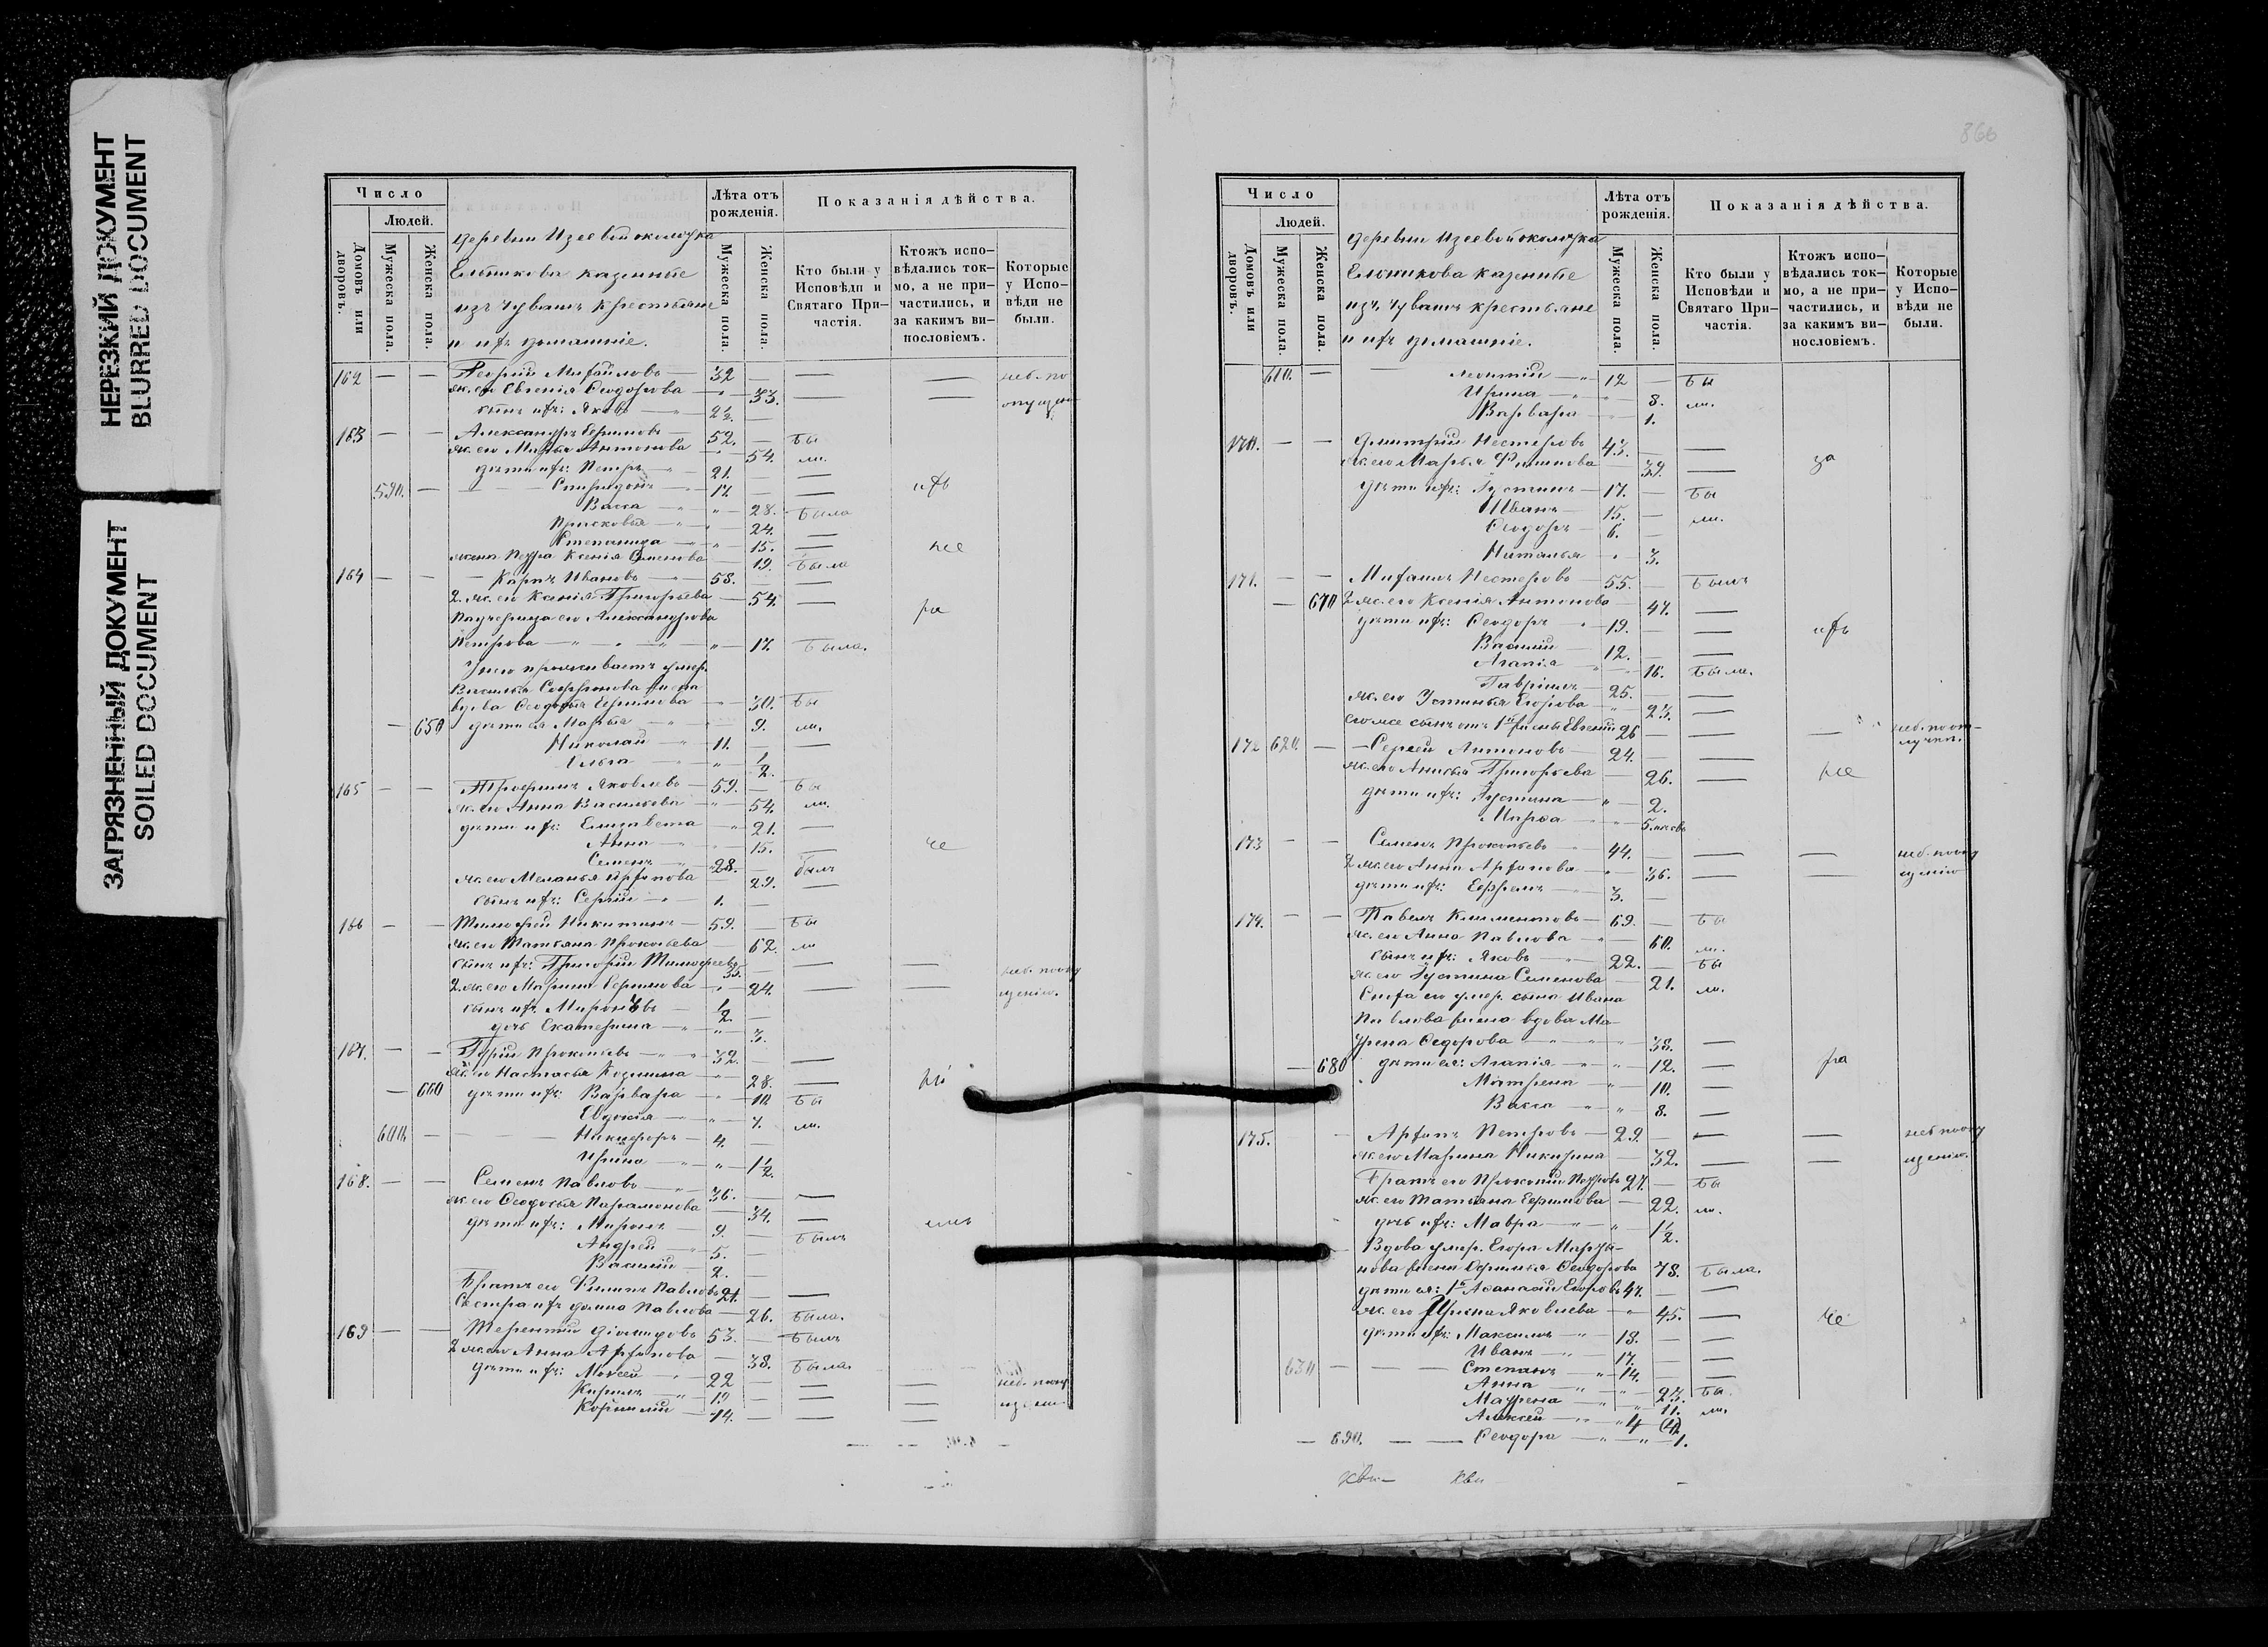 НЕРЕЗКИЙ ДОКУМЕНТ
BLURRED DOCUMENT
ЗАГРЯЗНЕННЫЙ ДОКУМЕНТ
SOILED DOCUMENT
Число
Людей.
Домовъ или дворовъ.
Мужеска пола.
Женска пола.
деревни Изеевой околодка
Ельникова казенные
изъ чувашъ крестьяне
и ихъ домашніе.
Лѣта отъ рожденія.
Мужеска пола.
Женска пола.
Показанія дѣйства.
Кто были у Исповѣди и Святаго Причастія.
Ктожъ исповѣдались токмо, а не причастились, и за какимъ винословіемъ.
Которые у Исповѣди не были.
162 — — Георгій Михайловъ — 32 — — неб. по
ж. его Евгенія Ѳеодорова — 33. — — опущен
сынъ ихъ: Яковъ — 2 1/2.
163 — — Александръ Ефимовъ — 52. — бы
ж. его Марья Антонова — 54. ли.
дѣти ихъ: Петръ — 21. —
590. — Спиридонъ — 17. — ихъ
Васса — 28. была
Прасковья — 24. —
Степанида — 15. — же
жена Петра Ксенія Семенова 19. была
164 — — Карпъ Ивановъ — 58. —
2. ж. его Ксенія Григорьева — 54. — ра
Падчерица его Александрова
Петрова — 17. была.
У него проживаетъ умер.
Василья Софронова жена
вдова Ѳеодосья Ефимова — 30. бы
— 650 дѣти ея Марья — 9. ли.
Николай — 11. —
Ольга — 1/2.
165 — — Трофимъ Яковлевъ — 59. — бы
ж. его Анна Васильева — 54. ли.
дѣти ихъ: Елизавета — 21. —
Анна — 15. — че
Семенъ — 28. — былъ
ж. его Меланья Архипова 29. —
сынъ ихъ: Сергій — 1. —
166 — — Тимофей Никитинъ — 59. — бы
ж. его Татьяна Прокопьева — 62. ли
сынъ ихъ: Григорій Тимофеевъ 35. — — неб. по опу
2. ж. его Марина Ефимова — 24. — — щенію.
сынъ их. Миронъ 1/2. —
дочь Екатерина — 3.
167. — — Гурій Прокопьевъ — 32. — —
ж. его Настасья Козмина — 28. —
— 660 дѣти ихъ: Варвара — 10 бы
Евдокія — 7. ли.
600. — Никифоръ — 4. —
Ирина — 1 1/2.
168. — — Семенъ Павловъ — 36. — —
ж. его Ѳеодосья Парамонова — 34. —
дѣти ихъ: Миронъ 9. — былъ
Андрей 5. —
Василій — 2. —
Братъ его Филиппъ Павловъ 21. — —
Сестра ихъ Домна Павлова — 26. была.
169 — — Терентій Діомидовъ 53. — былъ
2 ж. его Анна Архипова — 38. была.
дѣти ихъ: Моисей — 22 — — — неб. по опу
Кирилъ — 19 — — — щенію
Корнилій — 14. — — —
366
Число
Людей.
Домовъ или дворовъ.
Мужеска пола.
Женска пола.
деревни Изеевой околодка
Ельникова казенные
изъ чувашъ крестьяне
и ихъ домашніе.
Лѣта отъ рожденія.
Мужеска пола.
Женска пола.
Показанія дѣйства.
Кто были у Исповѣди и Святаго Причастія.
Ктожъ исповѣдались токмо, а не причастились, и за какимъ винословіемъ.
Которые у Исповѣди не были.
610. — — Леонтій — 12 — бы
Ирина — 8. ли.
Варвара — 1.
170. — — Дмитрій Нестеровъ 43. — —
ж. его Марья Филипова 39. — за
дѣти ихъ: Густинъ — 17. — бы
Иванъ — 15. — ли.
Ѳеодоръ — 6. —
Наталья — 3.
171. — — Михаилъ Нестеровъ — 55. — былъ
— 670 2 ж. его Ксенія Антонова 47. —
дѣти ихъ: Ѳеодоръ 19. — — ихъ
Василій — 12. — —
Агапія — 16. была.
Гавріилъ — 25. — —
ж. его Устинья Егорова — 23. —
его же сынъ отъ 1й жены Евгеній 26 — — — неб. по от-
172 620. — Сергей Антоновъ — 24. — — лучкѣ.
ж. его Анисья Григорьева — 26. — же
дѣти ихъ: Густина — 2.
Марѳа — 5. мѣсѣв
173 — — Семенъ Прокопьевъ — 44. — — — неб. по опу
2 ж. его Анна Архипова — 36. — — щенію
дѣти ихъ: Ефремъ — 3. —
174. — — Павелъ Климентовъ — 69. — бы
ж. его Анна Павлова — 60. ли.
сынъ ихъ: Яковъ — 22. — бы
ж. его Густина Семенова — 21. ли.
Сноха его умер. сына Ивана
Павлова жена вдова Ма-
трена Ѳедорова — 38. —
— 680 дѣти ея: Агапія — 12. — ра
Матрена — 10. —
Васса — 8. —
175. — Архипъ Петровъ — 29. — — — неб по опу
ж. его Марина Никитина — 32. — — щенію.
Братъ его Прокопій Петровъ 27. — бы
ж. его Татьяна Ефимова — 22. ли.
дочь ихъ: Мавра — 1 1/2.
Вдова умер. Егора Марты-
нова жена Ефимья Ѳеодорова 78. была.
дѣти ея: 1й Аѳанасій Егоровъ 47. — —
ж. его Ирина Яковлева — 45. — че
дѣти ихъ: Максимъ — 18. — —
Иванъ — 17. — —
630 — — Степанъ — 14. — —
Анна — 23. бы.
Матрена — 11. ли.
Алексей — 4
— 690. — — Ѳеодора — 1.